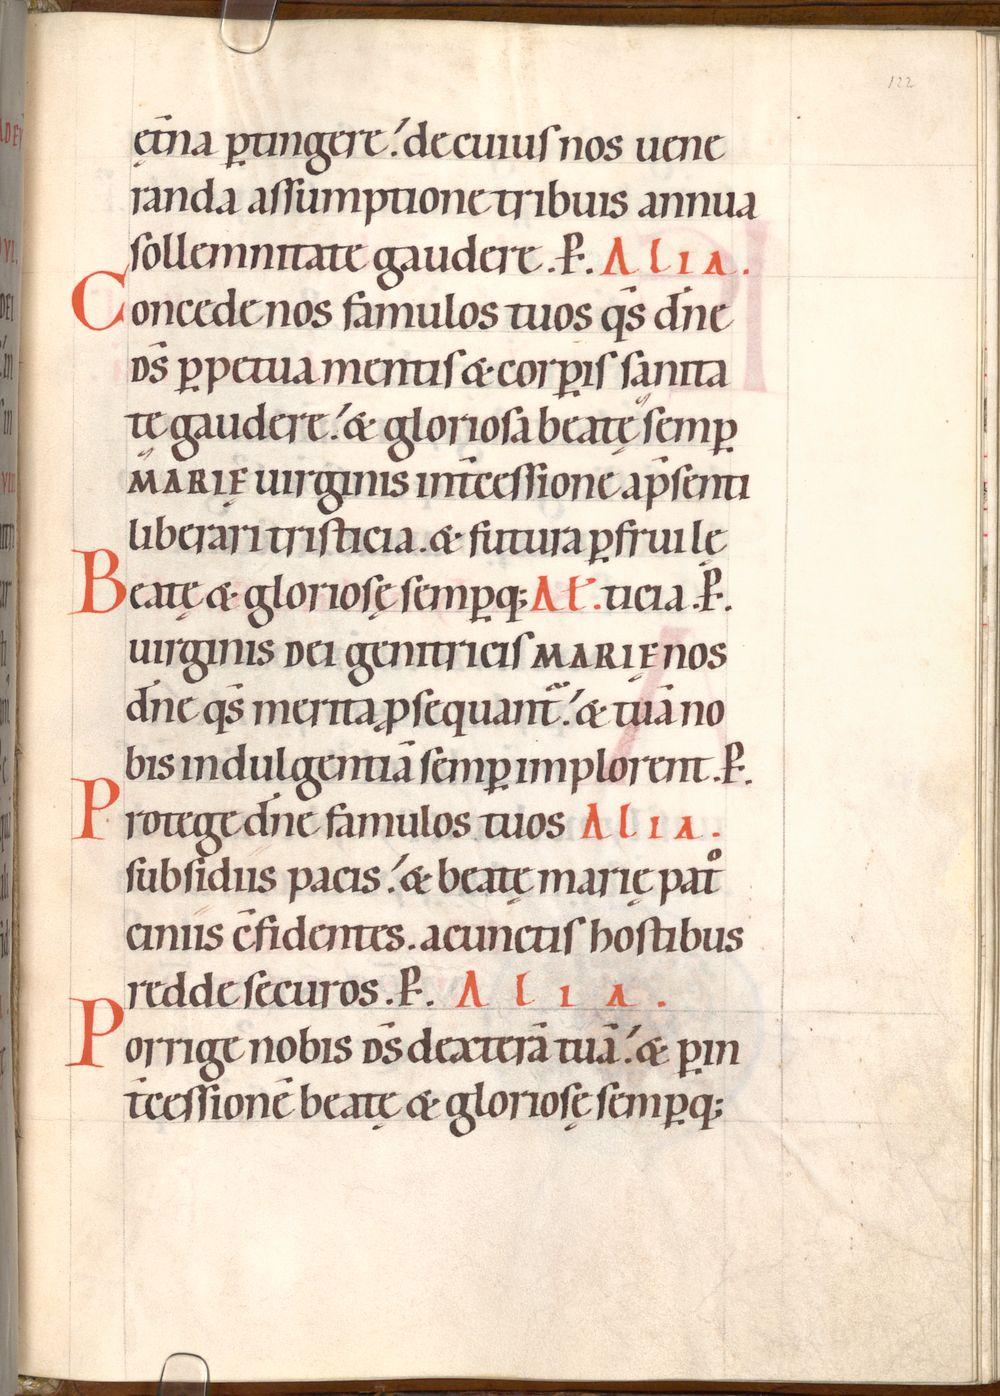 122
ęt̄na ꝑtingere.' de cuius nos uene
randa assumptione tribuis annua
sollemnitate gaudere. P̄. Alia.
Concede nos famulos tuos qs̄ dn̄e
ds̄ ꝑpetua mentis & corꝑis sanita
te gaudere.' & gloriosa beatę semꝑ
MARIĘ uirginis int̄cessione a p̄senti
liberari tristicia. & futura ꝑfrui lę
Beatę & gloriosę semꝑq; Al̄. ticia. P̄.
uirginis dei genitricis MARIĘ nos
dn̄e qs̄ merita ꝓsequant᷑.' & tuā no
bis indulgentiā semꝑ implorent. P̄.
Protege dn̄e famulos tuos Alia.
subsidiis pacis.' & beatę marię patͦ
ciniis c̄fidentes. a cunctis hostibus
redde securos. P̄. Alia.
Porrige nobis ds̄ dexterā tuā.' & ꝑ in
t̄cessionē beatę & gloriosę semꝑq;